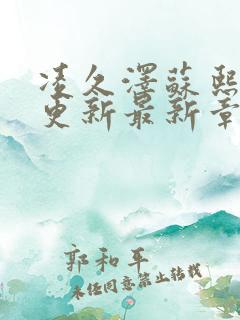 凌久澤蘇熙
更新最新章
郭和平
未经同意禁止转载